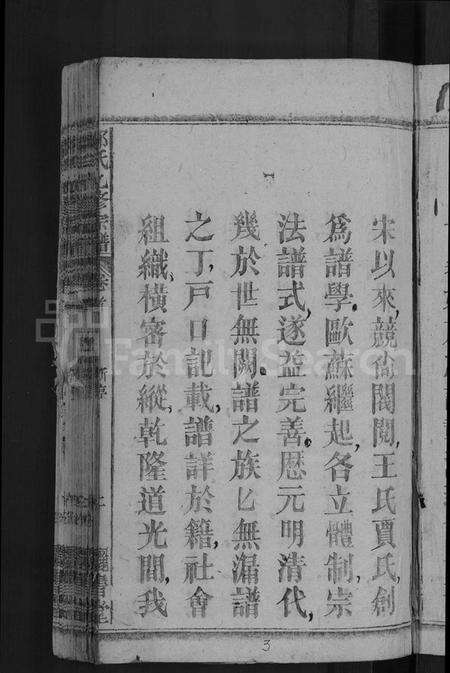 宋以來,競尙閥閱,王氏賈氏,創
爲譜學,歐蘇繼起,各立體制,宗
法譜式,遂益完善,歷元明清代,
幾於世無闕譜之族,亡無漏譜
之丁,戶口記載,譜詳於籍,社會
組織,橫密於縱,乾隆道光間,我
氏九修宗譜
卷首
新序
二
書堂
3
FamilySearch